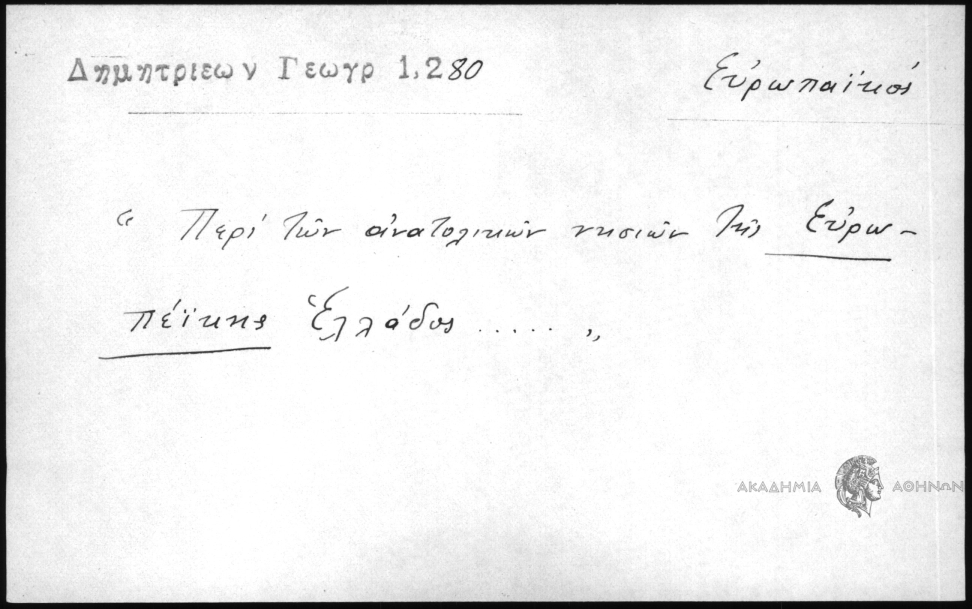 Δημητριεων Γεωγρ 1,280
Εὐρωπαϊκός
“ Περί τῶν ἀνατολικῶν νησιῶν τῆς Εὐρω-
πέϊκης Ἑλλάδος ..... „
ΑΚΑΔΗΜΙΑ ΑΘΗΝΩΝ